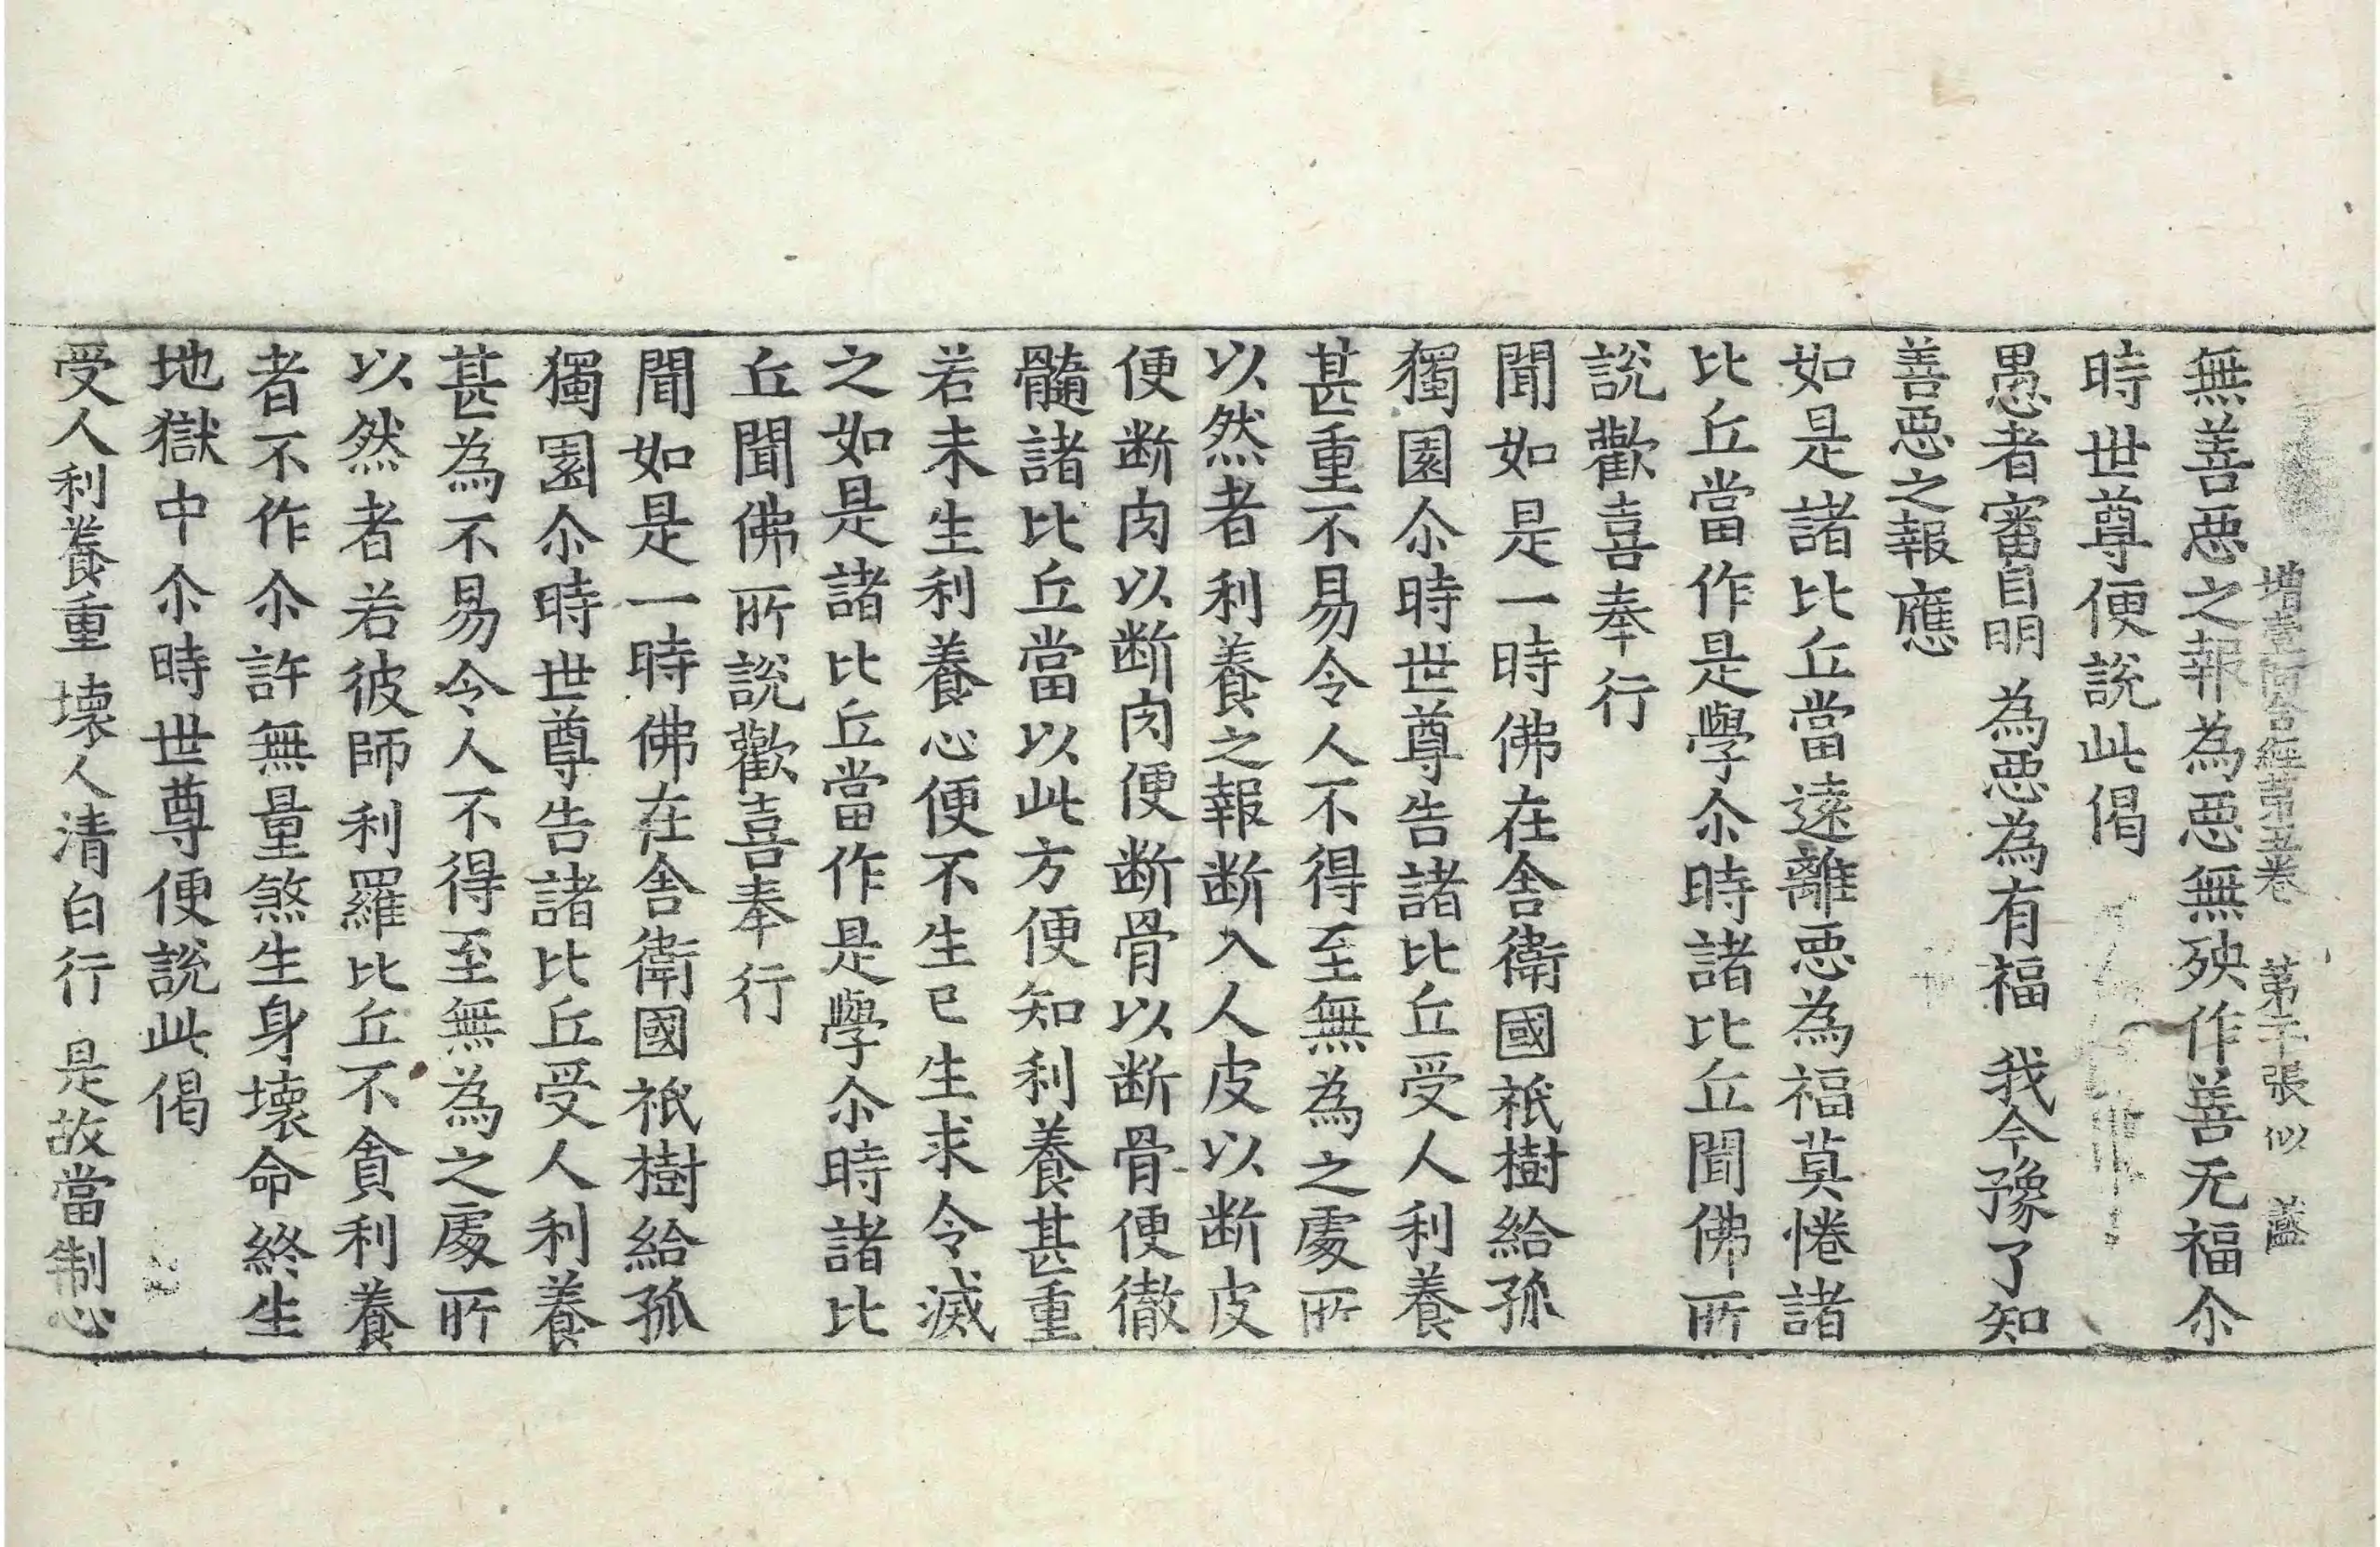 增壹阿含經第五卷 第干張 似 蘫
無善惡之報為惡無殃作善无福尒
時世尊便說此偈
愚者審自明 為惡為有福 我今豫了知
善惡之報應
如是諸比丘當遠離惡為福莫惓諸
比丘當作是學尒時諸比丘聞佛所
說歡喜奉行
聞如是一時佛在舍衛國祇樹給孤
獨園尒時世尊告諸比丘受人利養
甚重不易令人不得至無為之處所
以然者利養之報斷入人皮以斷皮
便斷肉以斷肉便斷骨以斷骨便徹
髓諸比丘當以此方便知利養甚重
若未生利養心便不生已生求令滅
之如是諸比丘當作是學尒時諸比
丘聞佛所說歡喜奉行
聞如是一時佛在舍衛國祇樹給孤
獨園尒時世尊告諸比丘受人利養
甚為不易令人不得至無為之處所
以然者若彼師利羅比丘不貪利養
者不作尒許無量煞生身壞命終生
地獄中尒時世尊便說此偈
受人利養重 壞人清白行 是故當制心